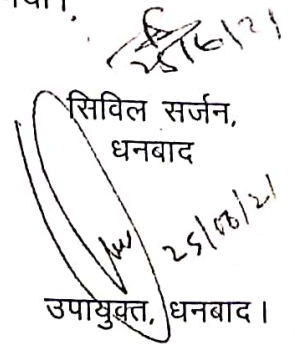 25/6/21
सिविल सर्जन,
धनबाद
25/06/21
उपायुक्त, धनबाद।